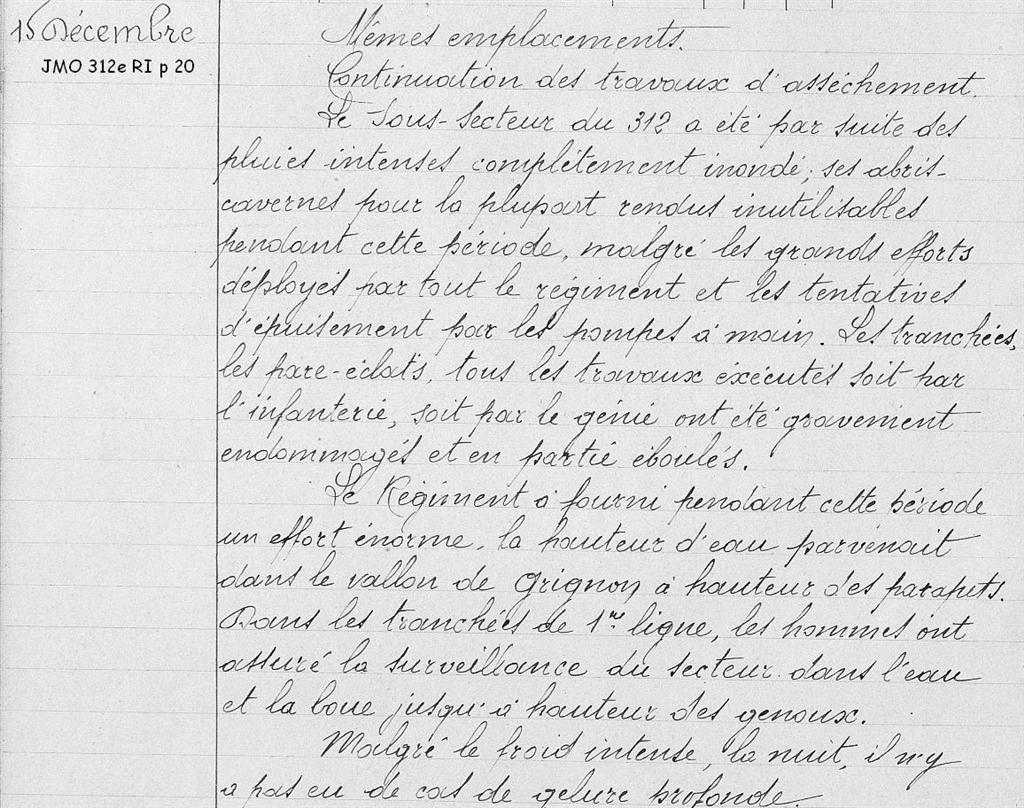 15 Décembre
JMO 312e RI p 20
Mêmes emplacements.
Continuation des travaux d'asséchement.
Le Sous-Secteur du 312 a été par suite des
pluies intenses complétement inondé; ses abris-
cavernes pour la plupart rendus inutilisables
pendant cette période, malgré les grands efforts
déployés par tout le régiment et les tentatives
d'épuisement par les pompes à main. Les tranchées,
les pare-éclats, tous les travaux éxécutés soit par
l'infanterie, soit par le génie ont été gravement
endommagés et en partie éboulés.
Le Régiment a fourni pendant cette période
un effort énorme. la hauteur d'eau parvenait
dans le vallon de Grignon à hauteur des parapets.
Dans les tranchées de 1re ligne, les hommes ont
assuré la surveillance du secteur dans l'eau
et la boue jusqu'à hauteur des genoux.
Malgré le froid intense, la nuit, il n'y
a pas eu de cas de gelure profonde.